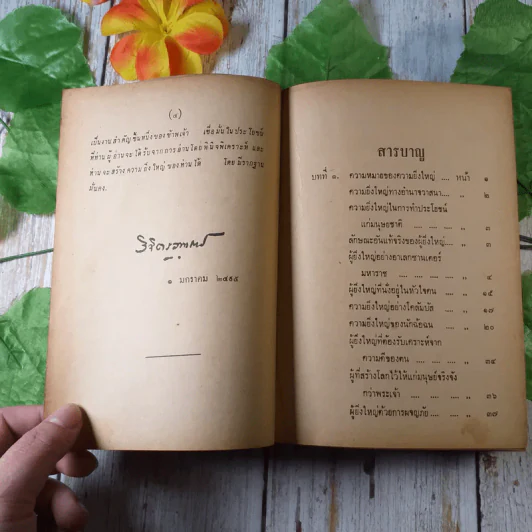 (๔)
เป็นงานสำคัญชิ้นหนึ่งของข้าพเจ้า เชื่อมั่นในประโยชน์
ที่ท่านผู้อ่านจะได้รับจากการอ่านโดยพินิจพิเคราะห์ และ
ท่านจะสร้างความยิ่งใหญ่ของท่านได้ โดยมีรากฐาน
มั่นคง.
วิจิตรวาทการ
๑ มกราคม ๒๔๙๕
สารบาญ
บทที่ ๑. ความหมายของความยิ่งใหญ่ .... หน้า ๑
ความยิ่งใหญ่ทางอำนาจวาสนา.... „ ๒
ความยิ่งใหญ่ในการทำประโยชน์
แก่มนุษยชาติ .... .... „ ๓
ลักษณะอันแท้จริงของผู้ยิ่งใหญ่.... „ ๓
ผู้ยิ่งใหญ่อย่างอาเลกซานเดอร์
มหาราช .... .... .... .... „ ๔
ผู้ยิ่งใหญ่ที่นั่งอยู่ในหัวใจคน „ ๑๕
ความยิ่งใหญ่อย่างโคลัมบัส „ ๑๗
ความยิ่งใหญ่ของนักฉ้อฉน „ ๒๐
ผู้ยิ่งใหญ่ที่ต้องรับเคราะห์จาก
ความดีของตน .... .... .... „ ๓๔
ผู้ที่สร้างโลกไว้ให้แก่มนุษย์จริงจัง
กว่าพระเจ้า .... .... .... .... „ ๓๖
ผู้ยิ่งใหญ่ด้วยการผจญภัย .... .... „ ๓๗